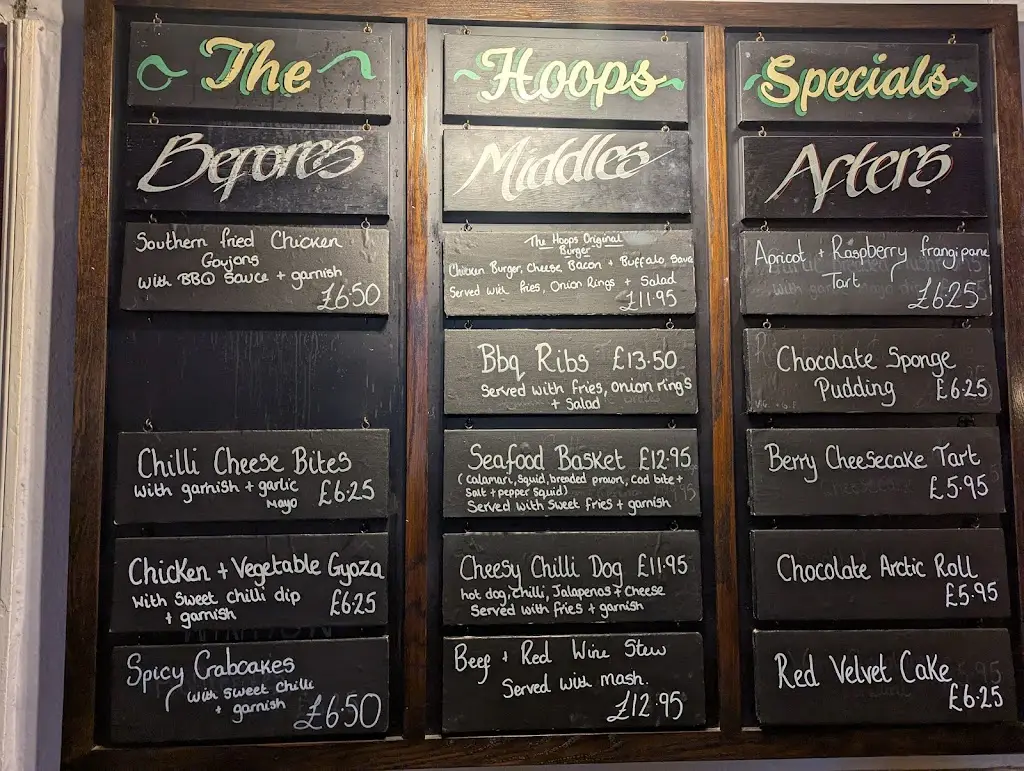 The Hoops Specials
Befores
Southern fried Chicken
Goujons
with BBQ Sauce + garnish
£6.50
Chilli Cheese Bites
with garnish + garlic
Mayo £6.25
Chicken + Vegetable Gyoza
with Sweet chilli dip
+ garnish £6.25
Spicy Crabcakes
with sweet chilli
+ garnish £6.50
Middles
The Hoops Original
Burger
Chicken Burger, Cheese Bacon + Buffalo, Sauce
Served with fries, Onion Rings + Salad
£11.95
Bbq Ribs £13.50
Served with fries, onion rings
+ Salad
Seafood Basket £12.95
(Calamari, squid, breaded prawn, Cod bite +
Salt + pepper squid)
Served with Sweet fries + garnish
Cheesy Chilli Dog £11.95
hot dog, chilli, Jalapenos + Cheese
Served with fries + garnish
Beef + Red Wine Stew
Served with mash.
£12.95
Afters
Apricot + Raspberry frangipane
Tart
£6.25
Chocolate Sponge
Pudding £6.25
Berry Cheesecake Tart
£5.95
Chocolate Arctic Roll
£5.95
Red Velvet Cake
£6.25